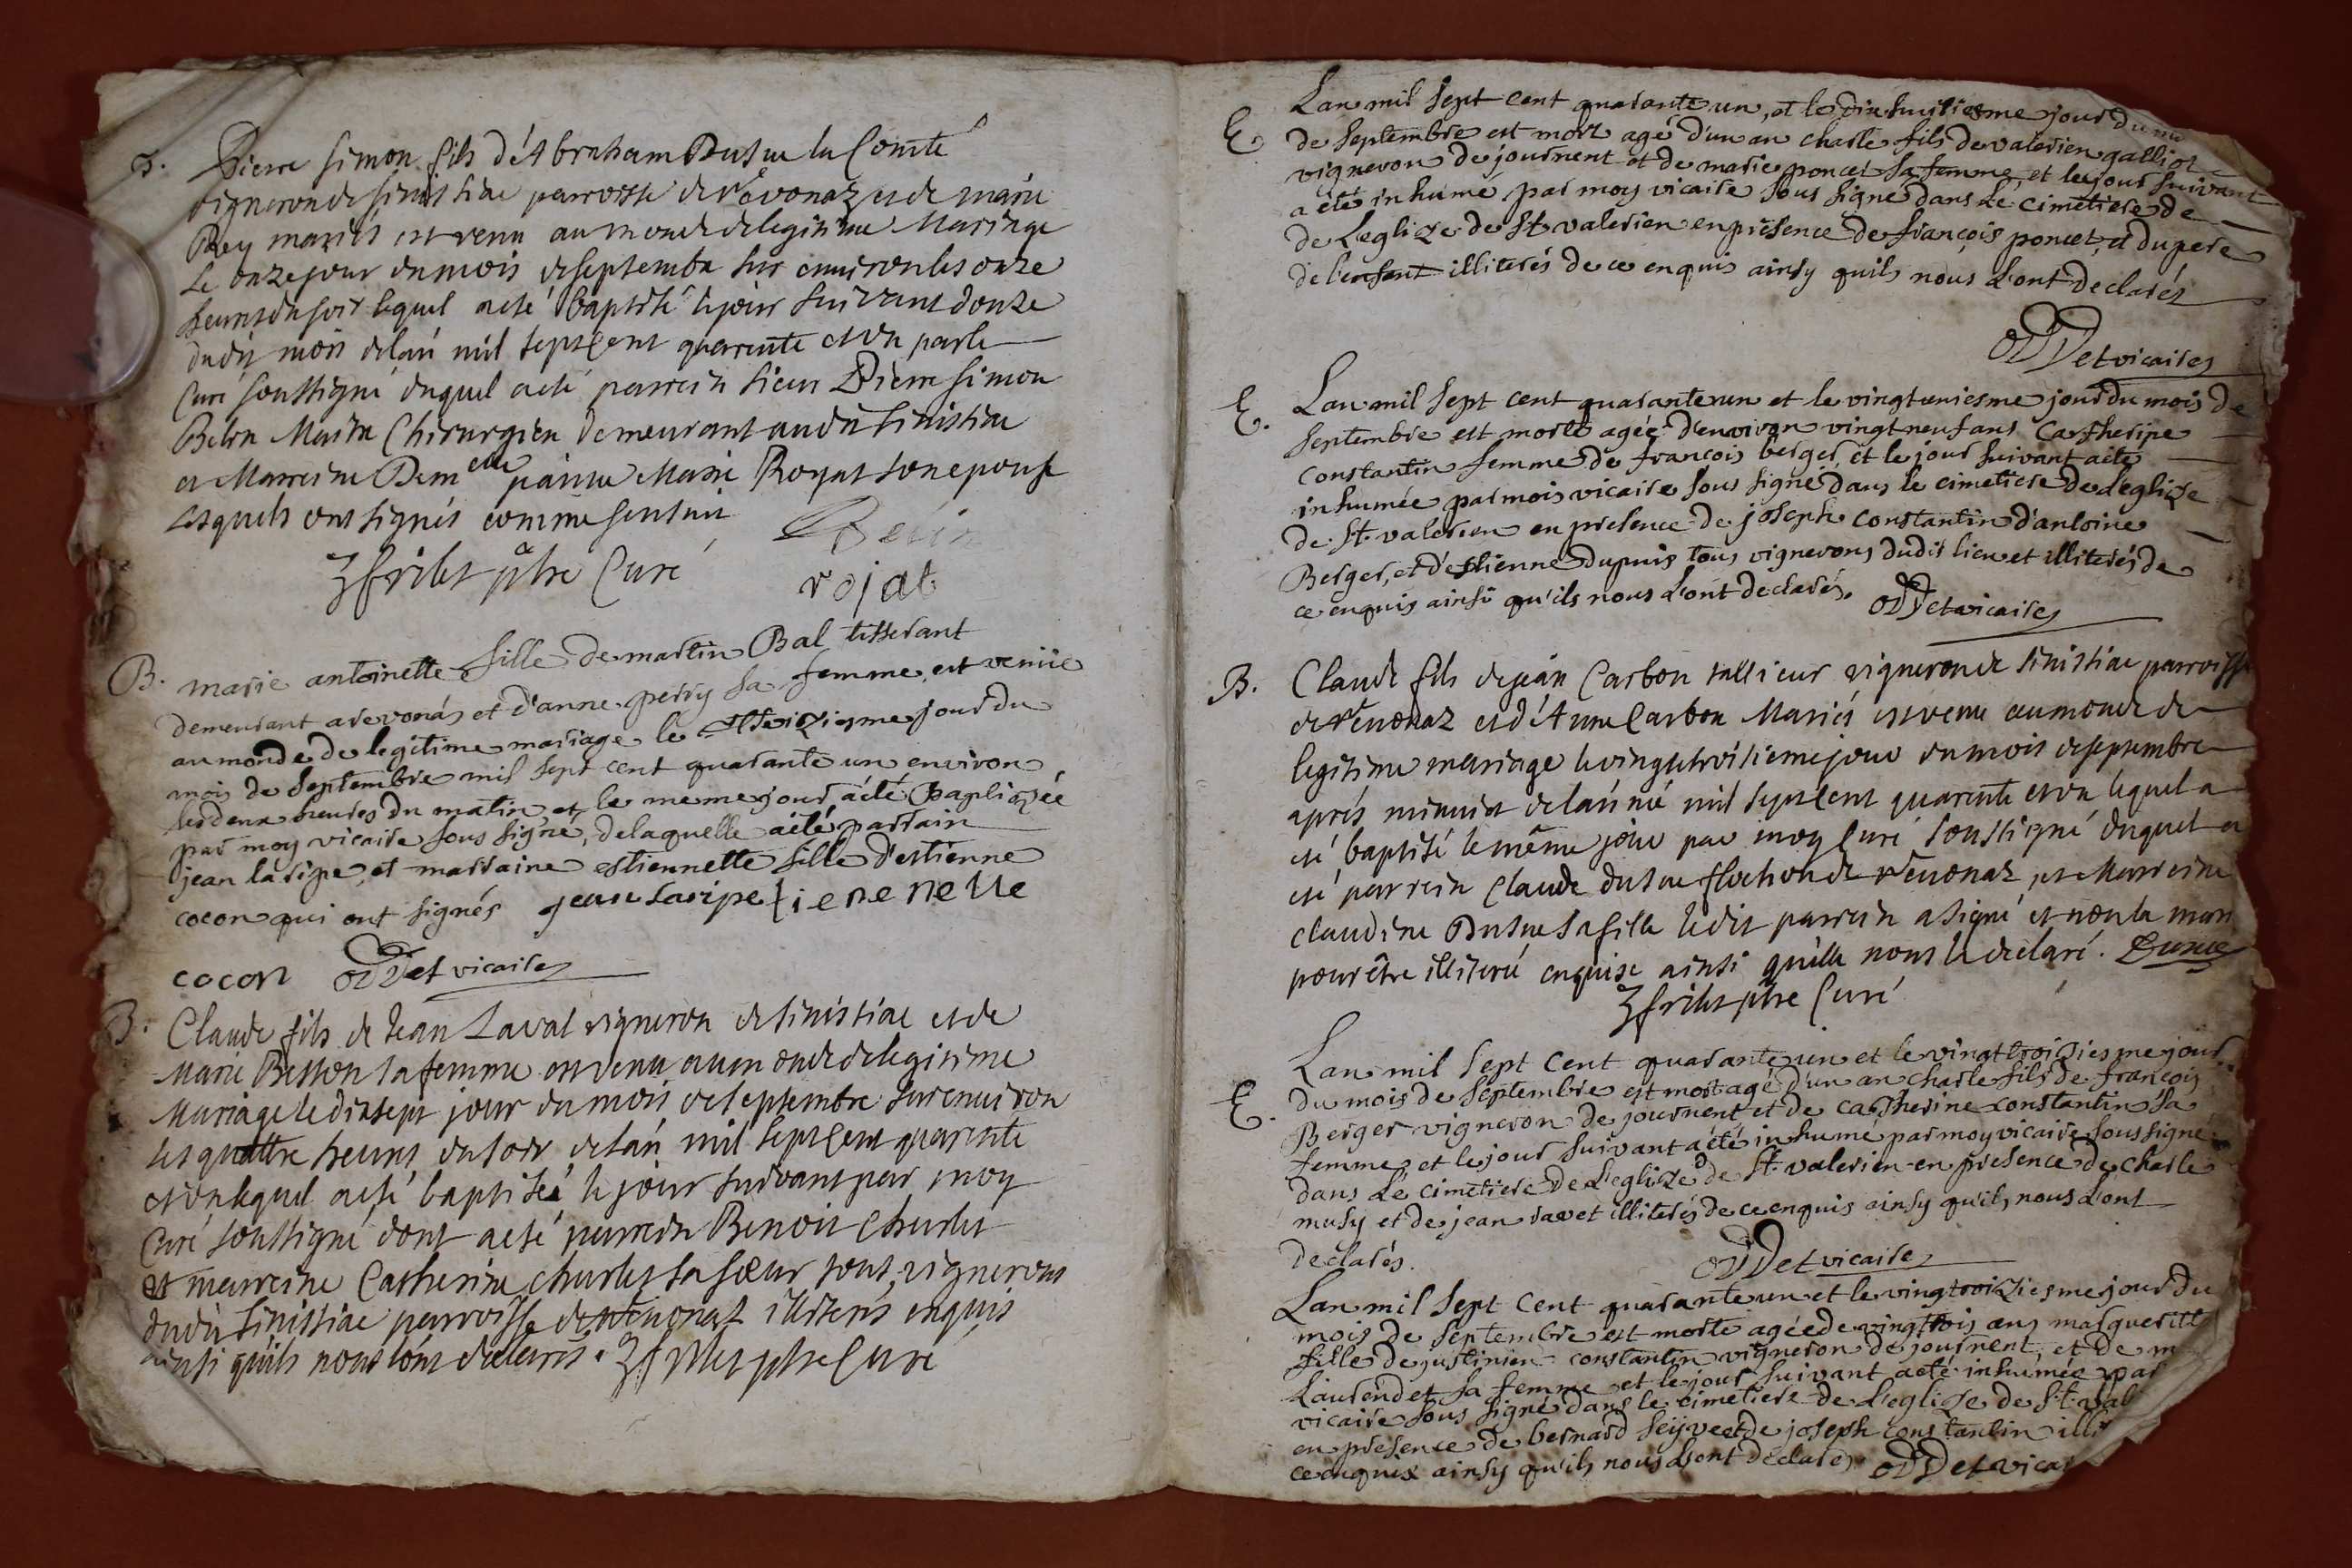 B. Pierre simon fils d'Abraham Dusue la Comte
vigneron de sinissiae parroisse de révonaz et de marie
Rey mariés est venu au monde de legitime Mariage
Le onze jour du mois de septembre sur environ les onze
heures du soir lequel a eté baptisé le jour suivant douze
dudit mois de lan mil sept cent quarente et un par le
Curé soussigné duquel a eté parrein sieur Pierre simon
Maitre Chirurgien demeurant audit sinissiae
et Marreine Dem^elle Marie Royat son epouse
lesquels ont signés comme sensuit
ptre Curé rojat
B. marie antoinette fille de martin Bal tisserant
demeurant a revonas et d'anne perry sa femme, est venüe
au monde de legitime mariage le treiziesme jour du
mois de septembre mil sept cent quarante un environ
les deux heures du matin, et le meme jour a eté Baptizée
par moy vicaire sous signé, de laquelle a eté parrain
jean laripe, et marraine estiennette fille d'estienne
cocon qui ont signés jean laripe tienenette
cocon oDDet vicaire
B. Claude fils de Jean Laval vigneron de sinissiae et de
Marie Besson sa femme est venu au monde de legitime
Mariage le dixsept jour du mois de septembre sur environ
les quattre heures du soir de lan mil sept cent quarente
et un lequel a eté baptisé le jour suivant par moy
Curé soussigné dont a eté parrein Benoit Charles
et marreine Catherine charles sa soeur tous vignerons
dudit sinissiae parroisse de revonaz illiterés enquis
ainsi quils nous lont declarés. ptre Curé
Lan mil sept cent quarante un, et le dix huitiesme jour du
E. de septembre est mort agé d'un an charle fils de valerien galliot
vigneron de journent et de marie poncet sa femme, et le jour suivant
a eté inhumé par moy vicaire sous signé dans le cimetiere de
de L'eglize de St valerien en présence de françois poncet, et du pere
de l'enfant illiterés de ce enquis ainsy quils nous L'ont declarés
oDDet vicaire
E. Lan mil sept cent quarante un et le vingt uniesme jour du mois de
septembre est morte agée d'environ vingt neuf ans Catherine
constantin femme de francois berger, et le jour suivant a eté
inhumée par mois vicaire sous signé dans le cimetiere de leglize
de St. valerien en presence de joseph constantin d'antoine
Berger, et d'estienne dupuis tous vignerons dudit lieu et illiterés de
ce enquis ainsi qu'ils nous L'ont declarés. oDDet vicaire
B. Claude fils de jean Carbon tallieur vigneron de sinissiae parroisse
de révonaz et d'Anne Carbon Mariés est venu au monde de
legitime mariage le vingt troisieme jour du mois de septembre
aprés minuit de lannée mil sept cent quarente et un lequel a
eté baptisé le même jour par moy Curé soussigné duquel a
eté parrein Claude dusue flochon de révonaz et Marreine
claudine Dusue sa fille ledit parrein a signé et non la marr
pour être illiterée enquise ainsi quelle nous la declaré. Dusue
ptre Curé
Lan mil sept cent quarante un et le vingt troiziesme jour
E. du mois de septembre est mort agé d'un an charle fils de francois
Berger vigneron de journent et de catherine constantin sa
femme, et le jour suivant a été inhumé par moy vicaire sous signé
dans Le cimetiere de L'eglize de St. valerien en presence de charle
musy et de jean ravet illiterés de ce enquis ainsy qu'ils nous L'ont
declarés. oDDet vicaire
Lan mil sept cent quarante un et le vingtroiziesme jour du
mois de septembre est morte agée de vingtrois ans marguerite
fille de justinien constantin vigneron de journent, et de m
Laurendet sa femme et le jour suivant a eté inhumée par
vicaire sous signé dans le cimetiere de L'eglize de St. val
en presence de bernard seijve et de joseph constantin illi
ce enquis ainsy qu'ils nous L'ont déclarés oDDet vicai